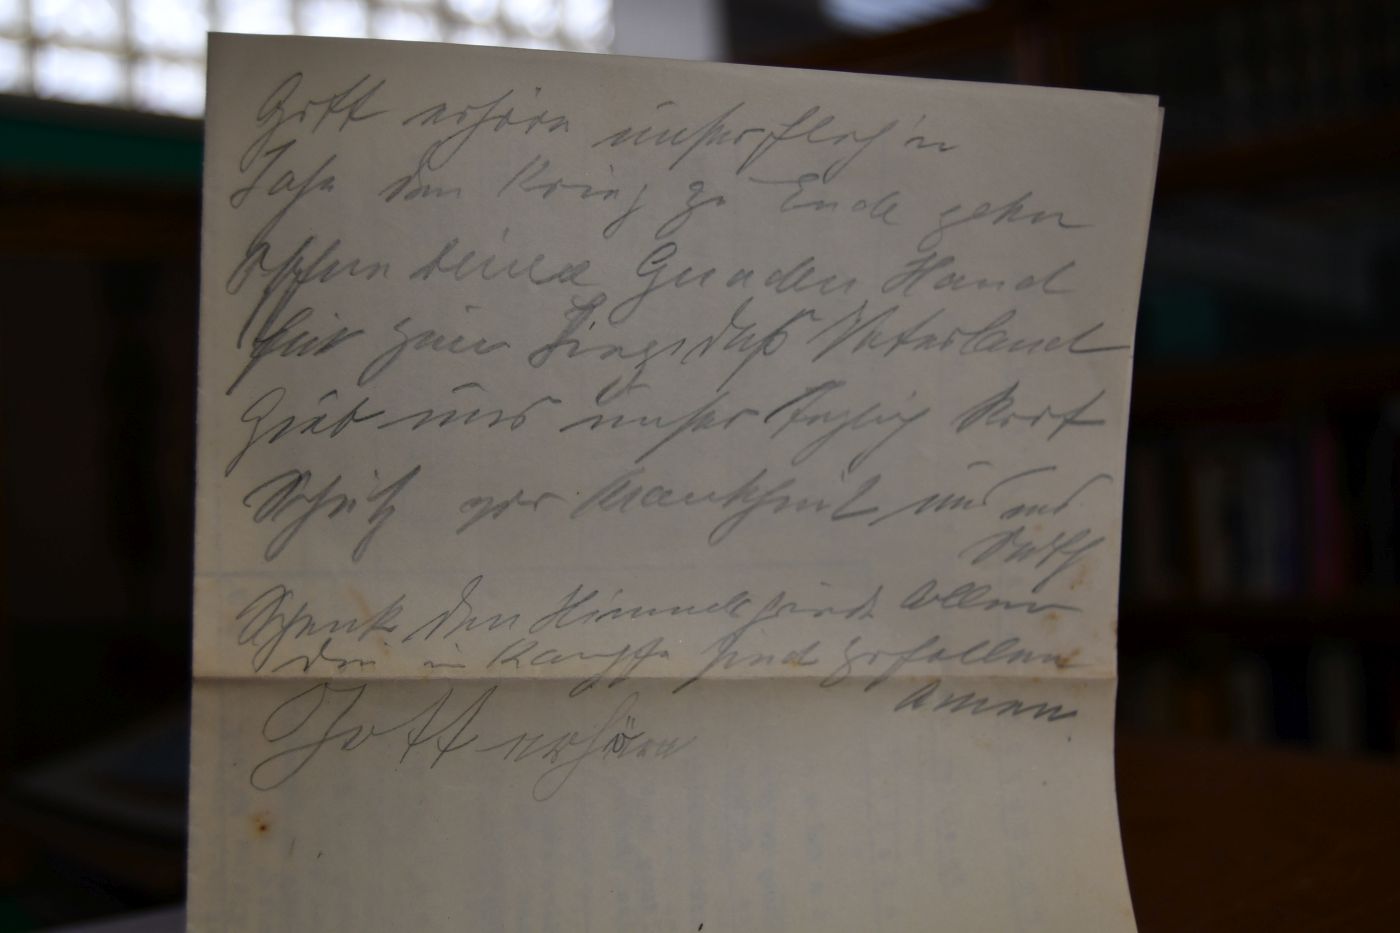 Gott erhöre unser flehn
Laß den Krieg zu Ende gehn
Öffne deine Gnaden Hand
für zum Siege das Vaterland
Gieb uns unser täglich Brot
Schütz vor Krankheit und
Schenk den Himmel Allen
die im Kampfe sind gefallen
Amen
Gott erhöre